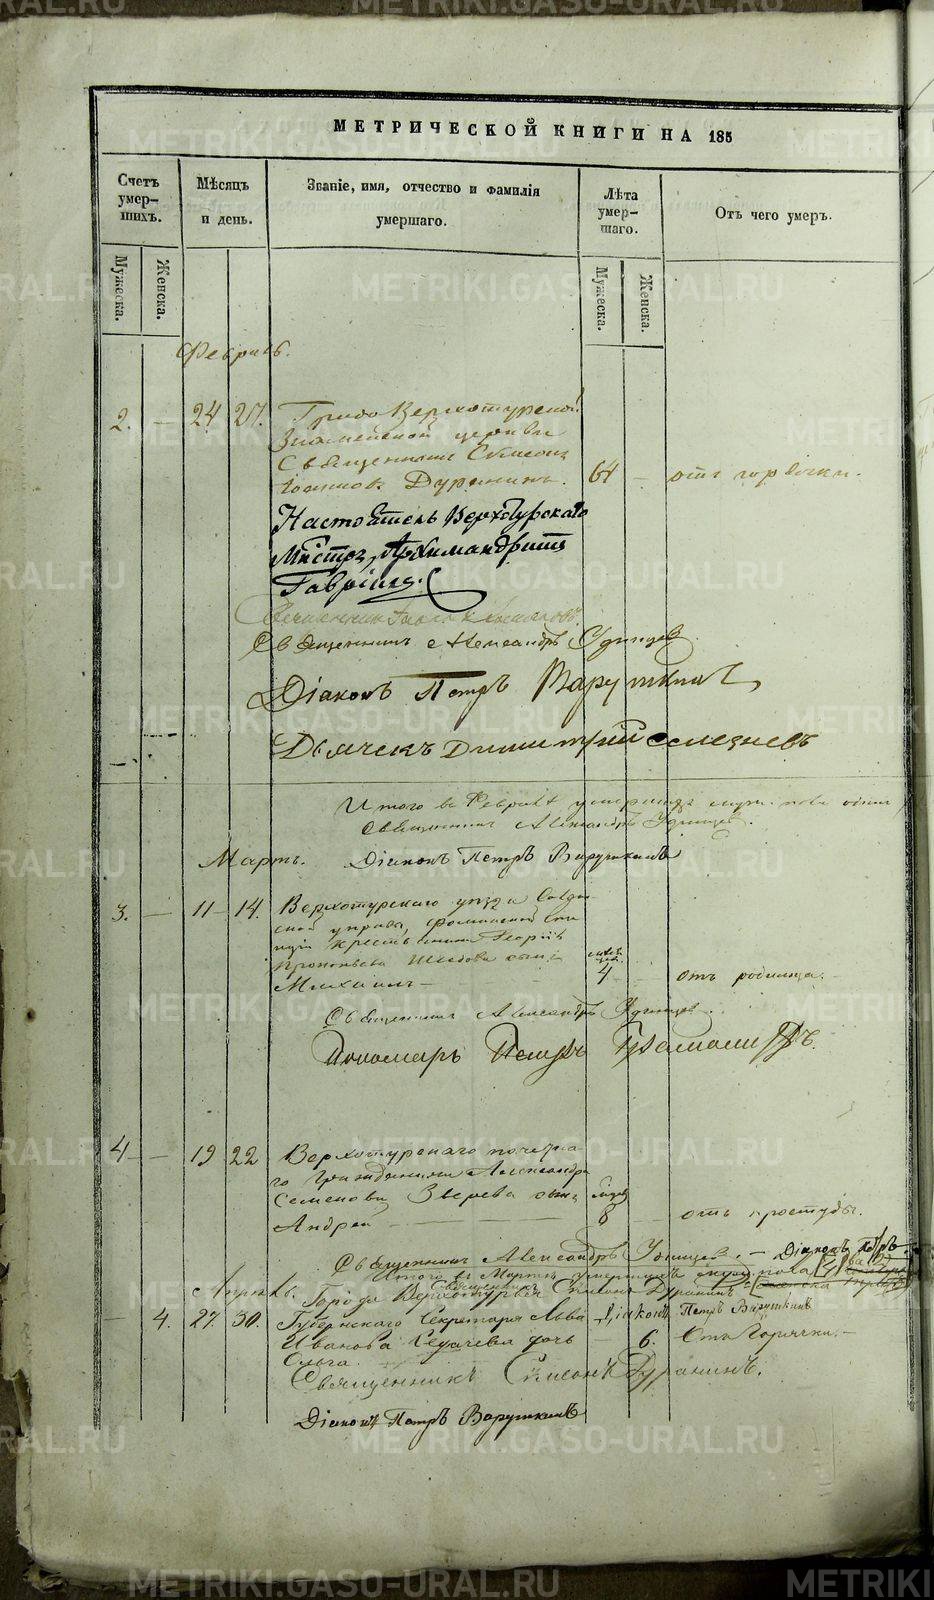 МЕТРИЧЕСКОЙ КНИГИ НА 185
Счетъ умер-шихъ.
Мѣсяцъ и день.
Званіе, имя, отчество и фамилія умершаго.
Лѣта умер-шаго.
Отъ чего умеръ.
Мужеска.
Женска.
Мужеска.
Женска.
Февраль.
2. — 24 27. Градо Верхотурской
Знаменской церкви
Священникъ Симеонъ
Іоанновъ Дуранинъ. 64 — отъ горячки.
Настоятель Верхотурскаго
Мнстря, Архимандритъ
Гавріилъ.
Священникъ
Священникъ Александръ Удинцев.
Діаконъ Петръ Варушкинъ,
Дьячекъ Димитрий Селезневъ
Итого в Февралѣ умершихъ муж. пола один
Священникъ Александръ Удинцев.
Мартъ. Діаконъ Петръ Варушкинъ
3. — 11 — 14. Верхотурскаго уѣзда
ской управы, Фоминской
крестьянина Георгія
Прокопьева сынъ
Михаилъ — 4 — отъ родимца.
Священникъ Александръ Удинцев.
Пономарь Петръ
4 — — 19 22 Верхотурскаго почетна-
го гражданина Александра
Семенова Зверева сынъ
Андрей — 8 — отъ простуды.
Священникъ Александръ Удинцев. — Діаконъ Петръ
Итого в Мартѣ умершихъ пола
Священникъ Симеонъ Дуранинъ
Апрель. Города Верхотурья
— 4. 27. 30. Губернскаго Секретаря Льва Діаконъ Петръ Варушкинъ
Иванова дочь 6. Отъ Горячки. —
Ольга.
Священникъ Симеонъ Дуранинъ.
Діаконъ Петръ Варушкинъ
METRIKI.GASO-URAL.RU